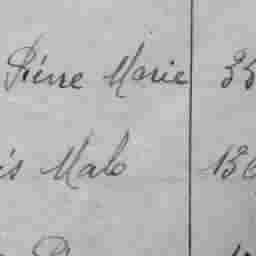 Piérre Marie 35
is Malo 136